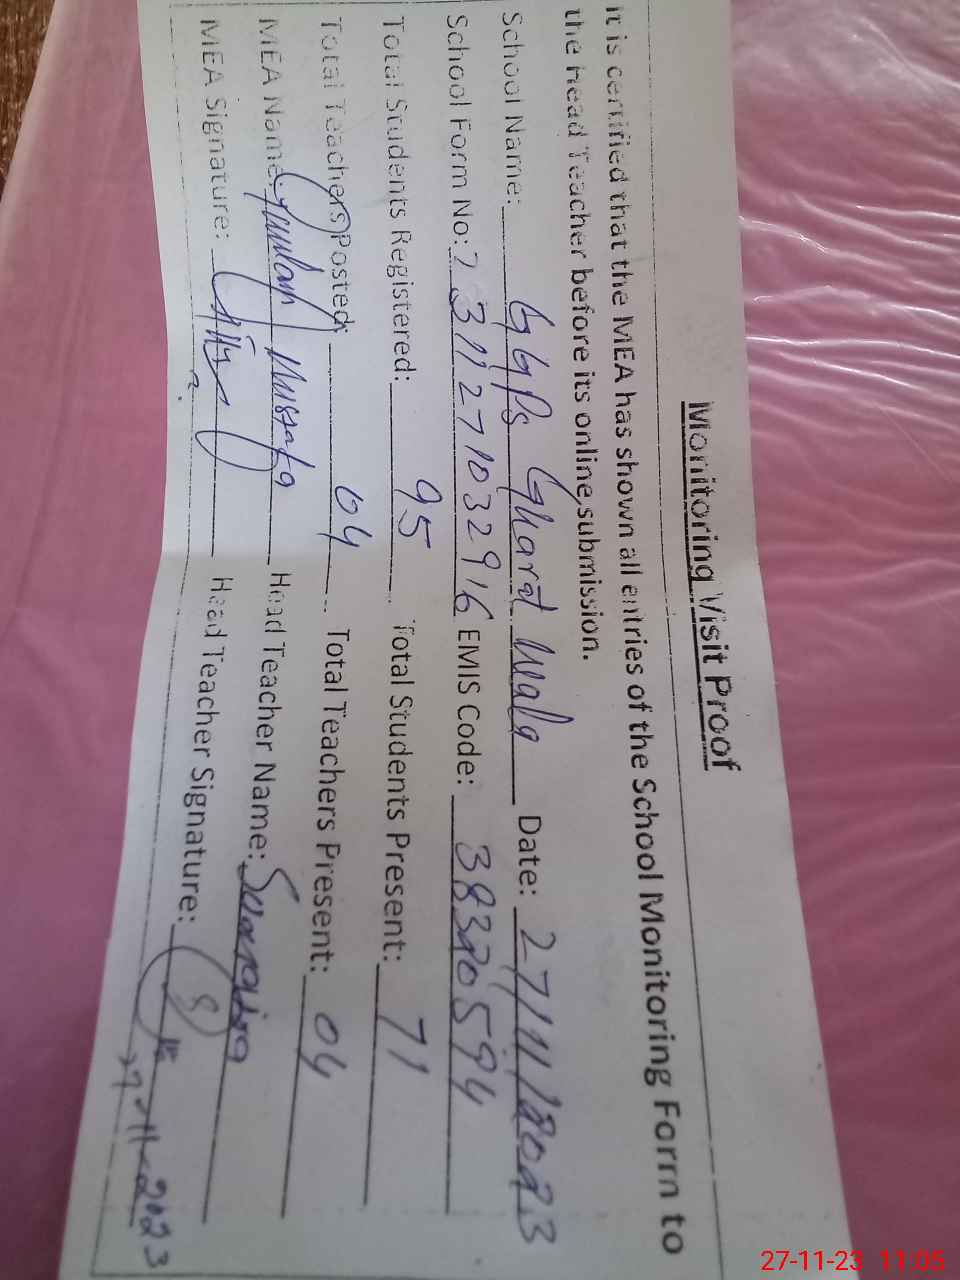 Monitoring Visit Proof
It is certified that the MEA has shown all entries of the School Monitoring Form to
the Head Teacher before its online submission.
School Name: GGPS Gharat Wala Date: 27/11/2023
School Form No: 23112710332916 EMIS Code: 38320594
Total Students Registered: 95 Total Students Present: 71
Total Teachers Posted: 04 Total Teachers Present: 04
MEA Name: Ghulam Mustafa Head Teacher Name: Sumaira
MEA Signature: Head Teacher Signature:
27-11-2023
27-11-23 11:05